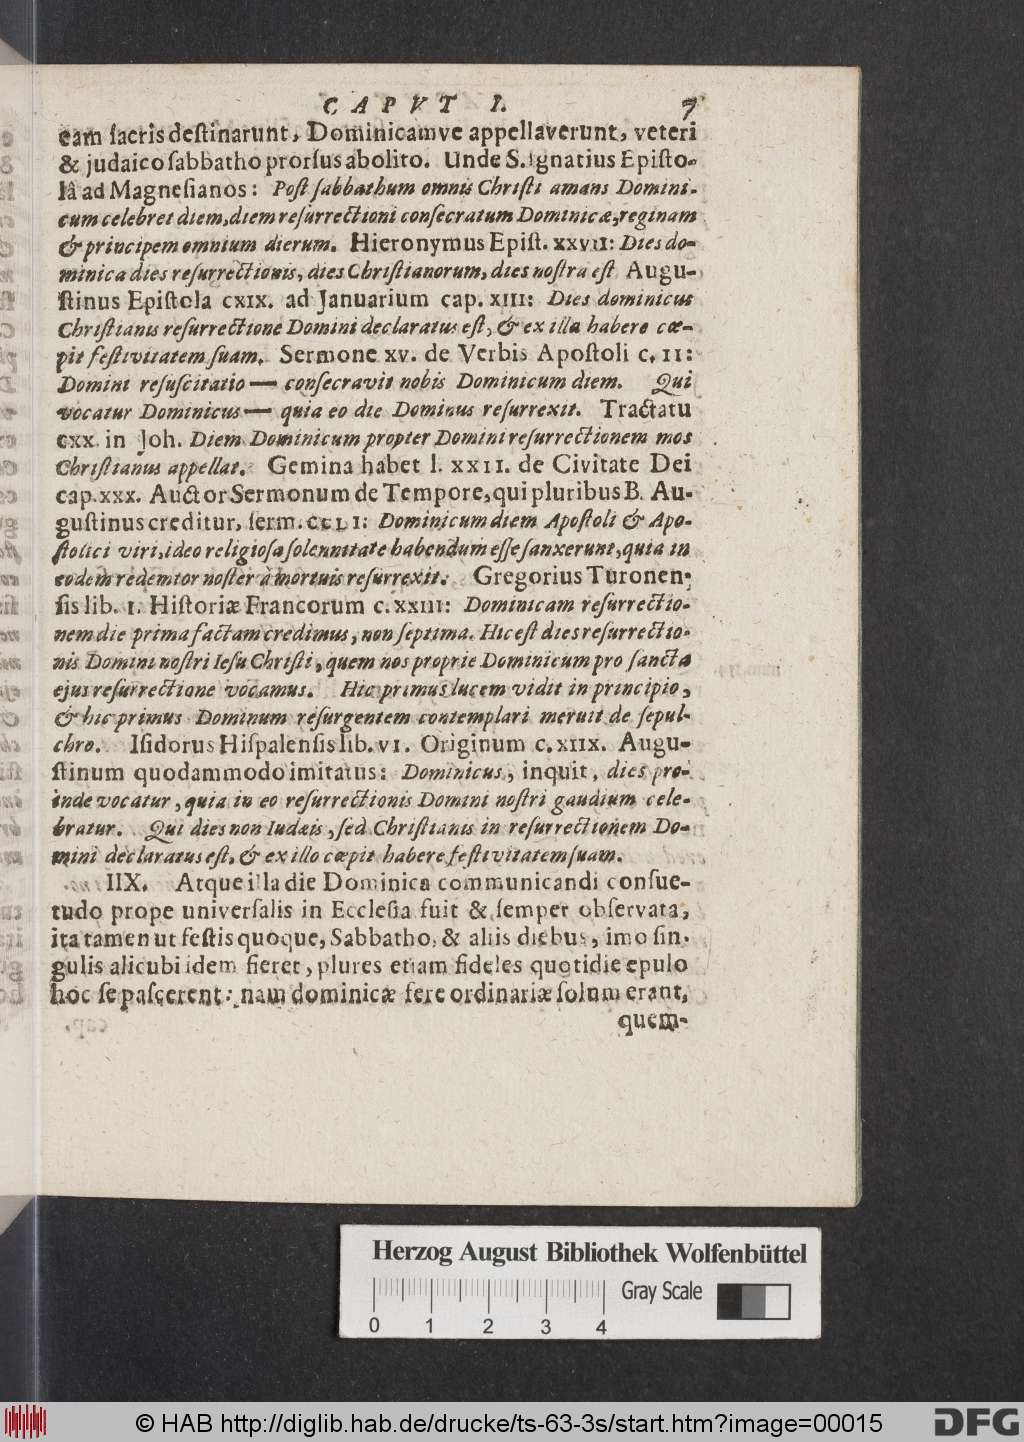 CAPVT I. 7
eam ſacris deſtinarunt, Dominicamve appellaverunt, veteri
& judaico ſabbatho prorſus abolito. Unde S. Ignatius Epiſto-
lâ ad Magneſianos: Poſt ſabbathum omnis Chriſti amans Domini-
cum celebret diem, diem reſurrectioni conſecratum Dominicæ, reginam
& principem omnium dierum. Hieronymus Epiſt. XXVII: Dies do-
minica dies reſurrectionis, dies Chriſtianorum, dies noſtra eſt. Augu-
ſtinus Epiſtola CXIX. ad Januarium cap. XIII: Dies dominicus
Chriſtianis reſurrectione Domini declaratus eſt, & ex illa habere cœ-
pit feſtivitatem ſuam. Sermone XV. de Verbis Apoſtoli c. II:
Domini reſuſcitatio — conſecravit nobis Dominicum diem. Qui
vocatur Dominicus — quia eo die Dominus reſurrexit. Tractatu
CXX. in Joh. Diem Dominicum propter Domini reſurrectionem mos
Chriſtianus appellat. Gemina habet l. XXII. de Civitate Dei
cap. XXX. Auctor Sermonum de Tempore, qui pluribus B. Au-
guſtinus creditur, ſerm. CCLI: Dominicum diem Apoſtoli & Apo-
ſtolici viri, ideo religioſa ſolennitate habendum eſſe ſanxerunt, quia in
eodem redemtor noſter à mortuis reſurrexit. Gregorius Turonen-
ſis lib. I. Hiſtoriæ Francorum c. XXIII: Dominicam reſurrectio-
nem die prima factam credimus, non ſeptima. Hic eſt dies reſurrectio-
nis Domini noſtri Ieſu Chriſti, quem nos proprie Dominicum pro ſancta
ejus reſurrectione vocamus. Hic primus lucem vidit in principio,
& hic primus Dominum reſurgentem contemplari meruit de ſepul-
chro. Iſidorus Hiſpalenſis lib. VI. Originum c. XIIX. Augu-
ſtinum quodammodo imitatus: Dominicus, inquit, dies pro-
inde vocatur, quia in eo reſurrectionis Domini noſtri gaudium cele-
bratur. Qui dies non Iudæis, ſed Chriſtianis in reſurrectionem Do-
mini declaratus eſt, & ex illo cœpit habere feſtivitatem ſuam.
IIX. Atque illa die Dominica communicandi conſue-
tudo prope univerſalis in Eccleſia fuit & ſemper obſervata,
ita tamen ut feſtis quoque, Sabbatho, & aliis diebus, imo ſin-
gulis alicubi idem fieret, plures etiam fideles quotidie epulo
hoc ſe paſcerent: nam dominicæ fere ordinariæ ſolum erant,
quem-
Herzog August Bibliothek Wolfenbüttel
Gray Scale
0 1 2 3 4
© HAB http://diglib.hab.de/drucke/ts-63-3s/start.htm?image=00015
DFG